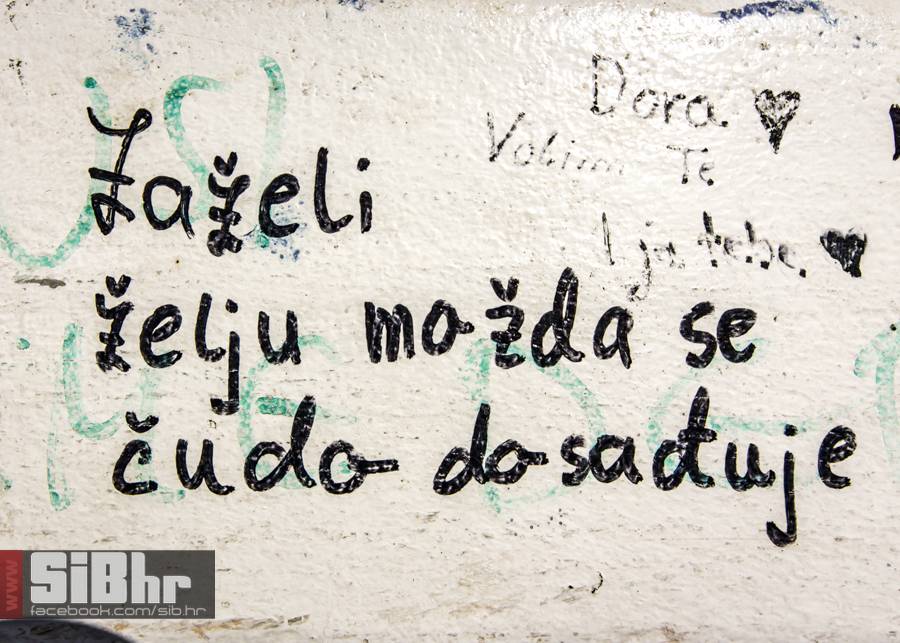 Dora
Volim Te
I ja tebe.
Zaželi
želju možda se
čudo dosađuje
www
SiBhr
facebook.com/sib.hr